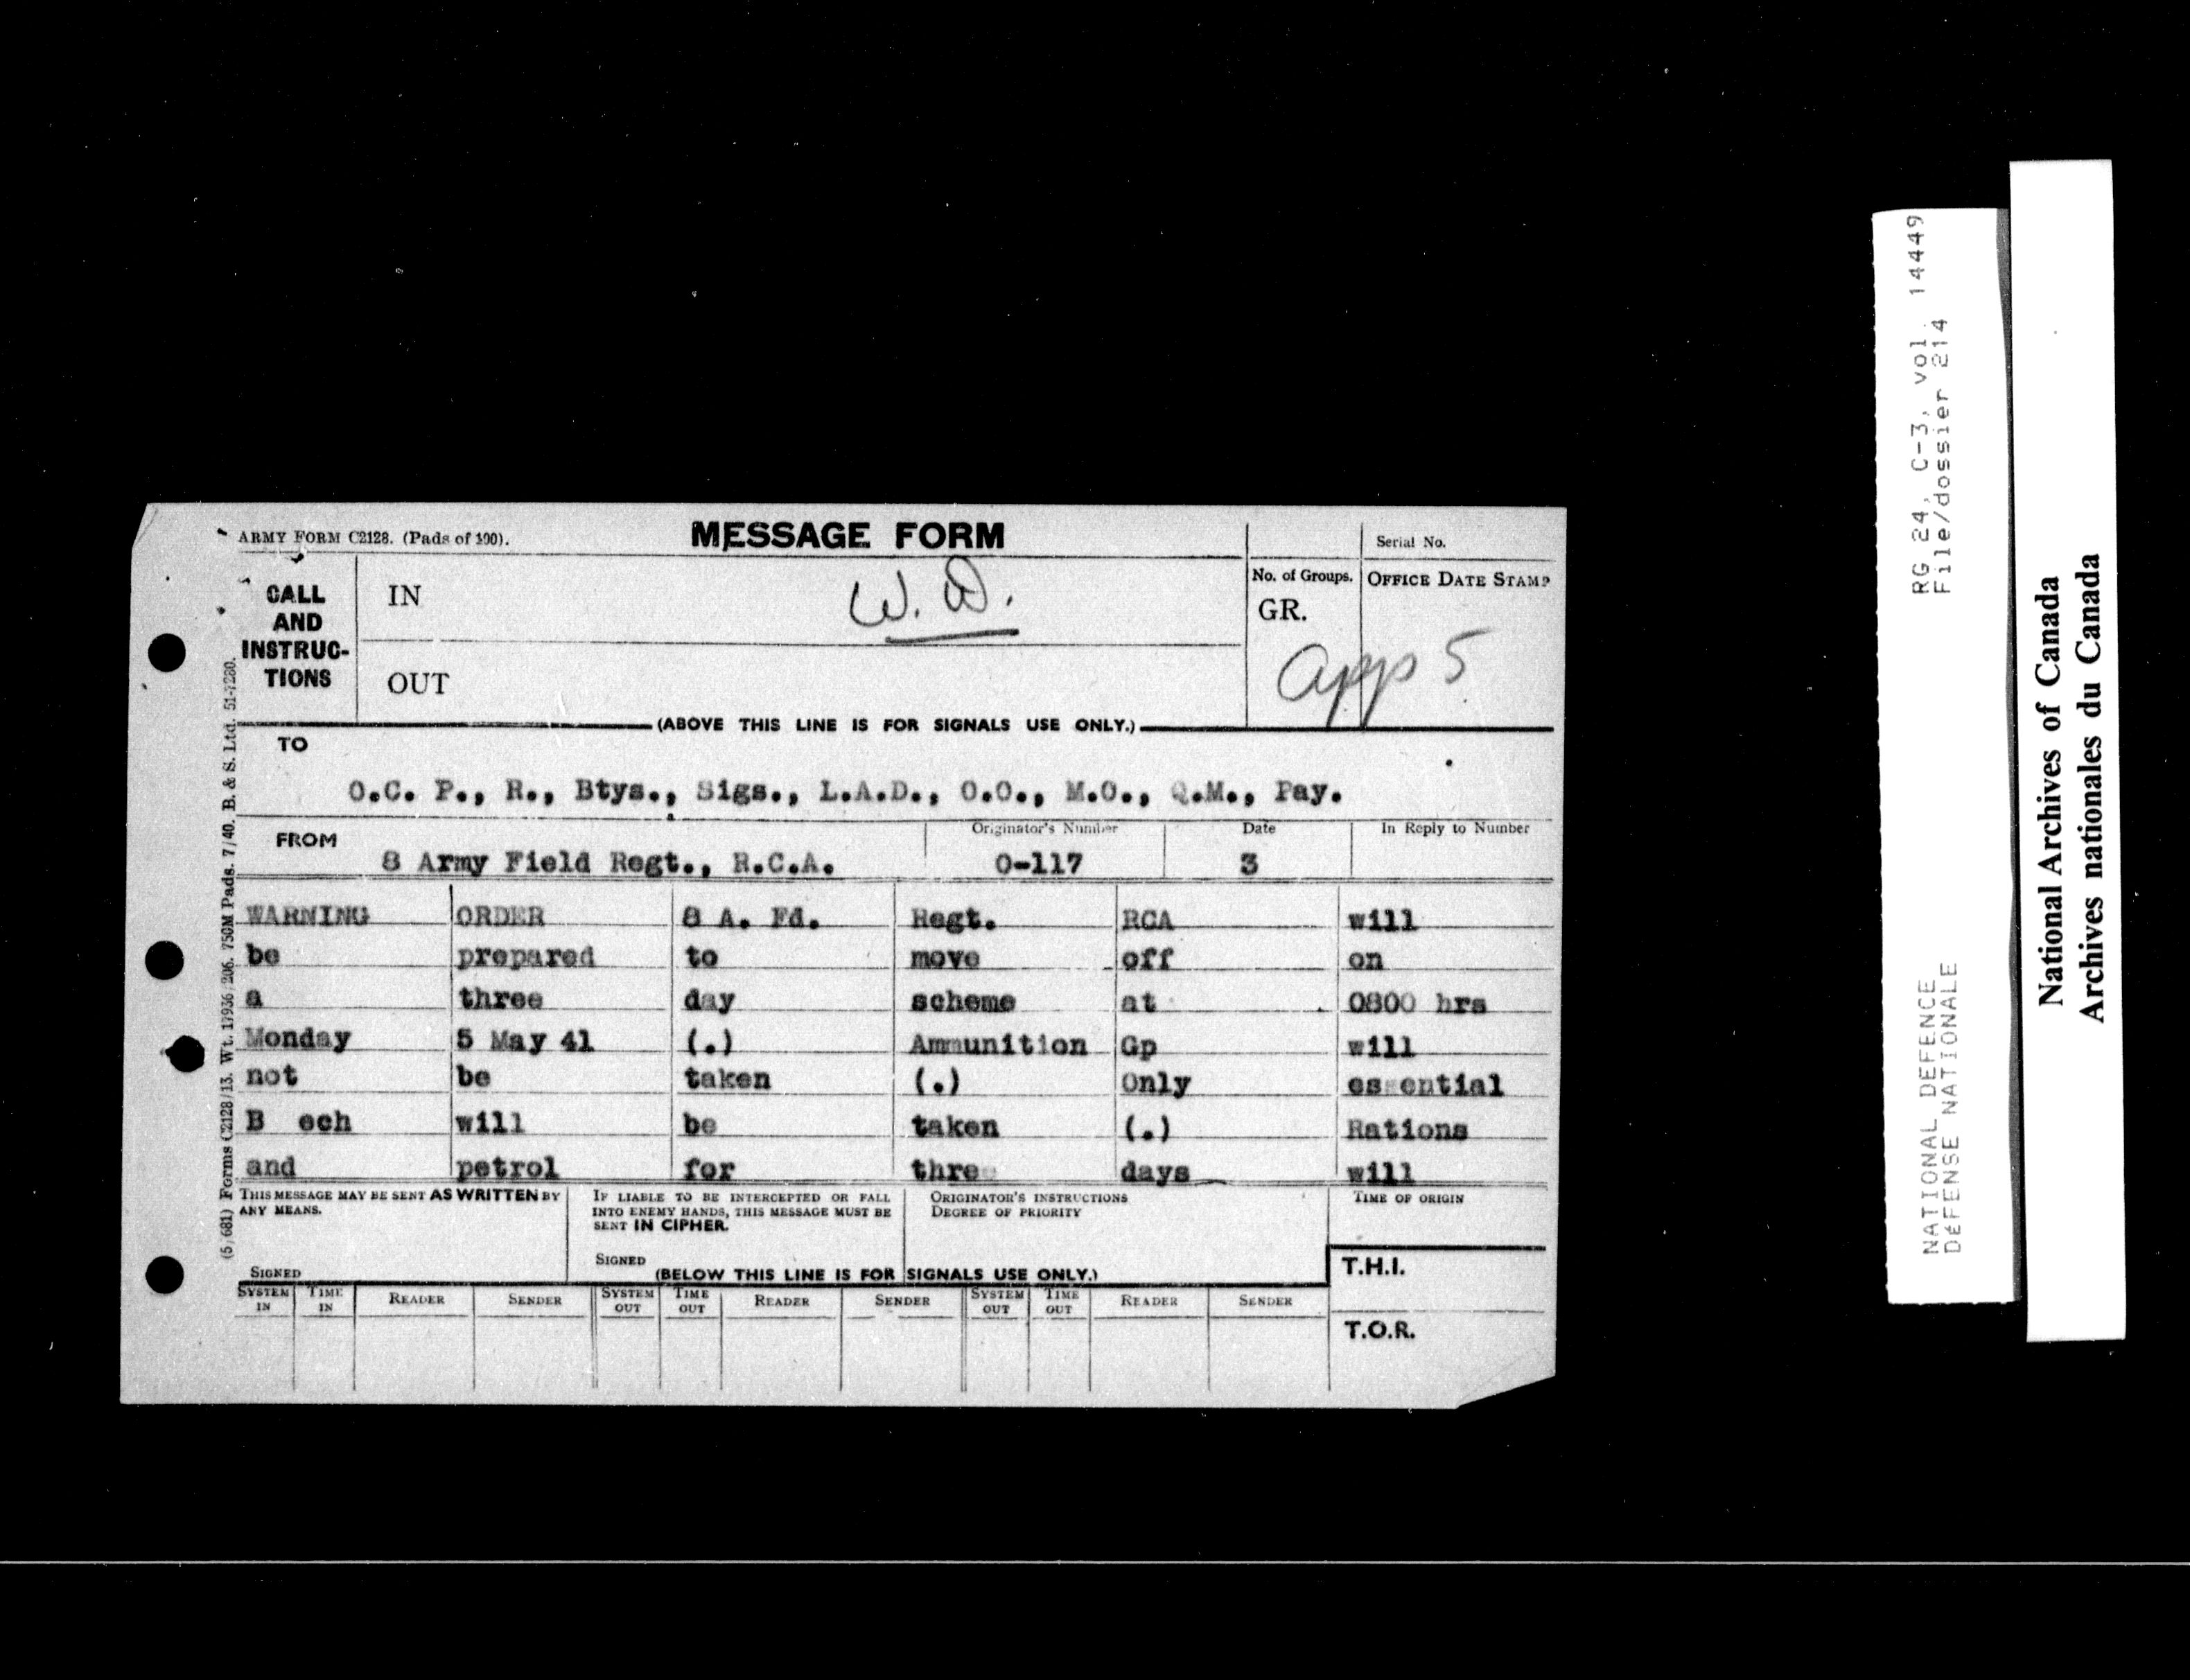 ARMY FORM C2128. (Pads of 100).
MESSAGE FORM
Serial No.
CALL AND INSTRUC-TIONS
IN
W. D.
No. of Groups.
GR.
OFFICE DATE STAMP
OUT
App 5
(ABOVE THIS LINE IS FOR SIGNALS USE ONLY.)
TO
O.C. P., R., Btys., Sigs., L.A.D., O.O., M.O., Q.M., Pay.
FROM
8 Army Field Regt., R.C.A.
Originator's Number
O-117
Date
3
In Reply to Number
WARNING ORDER 8 A. Fd. Regt. RCA will
be prepared to move off on
a three day scheme at 0800 hrs
Monday 5 May 41 (.) Ammunition Gp will
not be taken (.) Only essential
B ech will be taken (.) Rations
and petrol for three days will
THIS MESSAGE MAY BE SENT AS WRITTEN BY
ANY MEANS.
SIGNED
IF LIABLE TO BE INTERCEPTED OR FALL
INTO ENEMY HANDS, THIS MESSAGE MUST BE
SENT IN CIPHER.
SIGNED
ORIGINATOR'S INSTRUCTIONS
DEGREE OF PRIORITY
TIME OF ORIGIN
(BELOW THIS LINE IS FOR SIGNALS USE ONLY.)
T.H.I.
SYSTEM IN TIME IN READER SENDER SYSTEM OUT TIME OUT READER SENDER SYSTEM OUT TIME OUT READER SENDER
T.O.R.
(5/681) Forms C2128/13. Wt. 17936/206. 750M Pads. 7/40. B. & S. Ltd. 51-7280.
RG 24, C-3, vol. 14449
File/dossier 214
NATIONAL DEFENCE
DÉFENSE NATIONALE
National Archives of Canada
Archives nationales du Canada